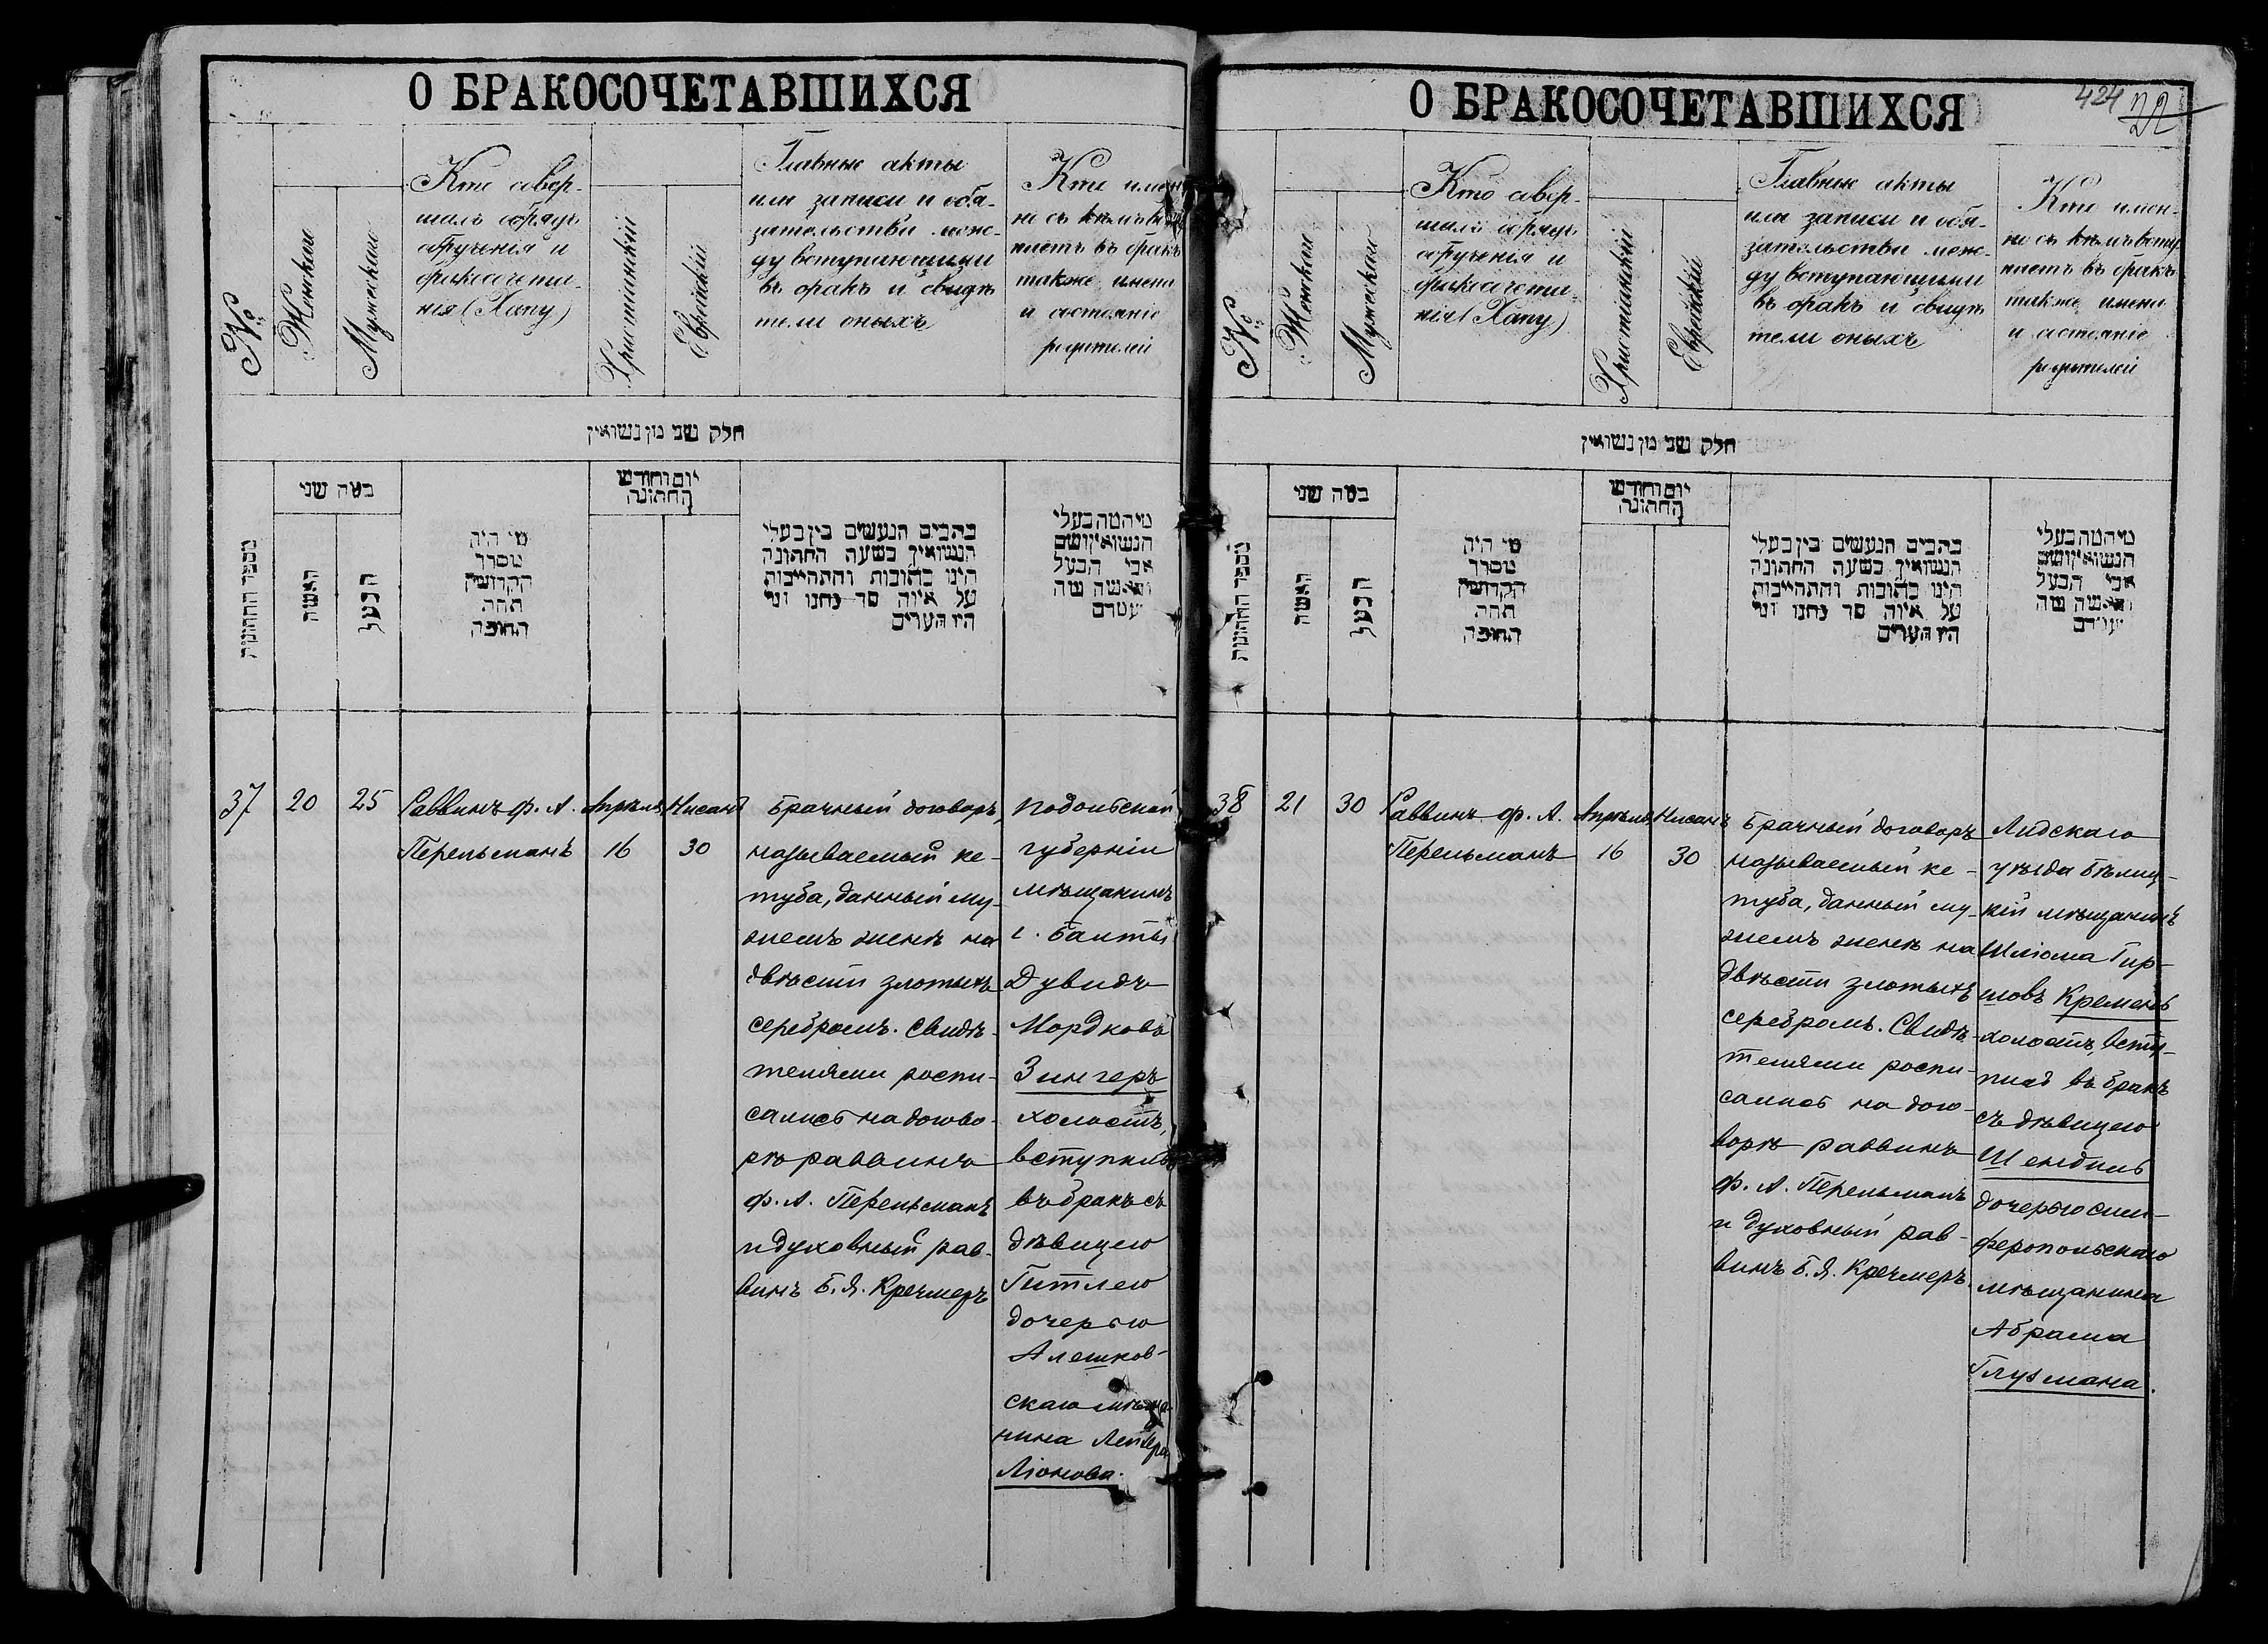 О БРАКОСОЧЕТАВШИХСЯ
№
Женская
Мужеская
Кто совер-
шалъ обрядъ
обрученія и
бракосочета-
нія (Хапу)
Христіанскій
Еврейскій
Главные акты
или записи и обя-
зательства меж-
ду вступающими
въ бракъ и свидѣ
тели оныхъ
Кто имен
но съ кѣмъ всту
паетъ въ бракъ
также имена
и состояніе
родителей
חלק שני מן נשואין
מספר החתונות
כמה שני
האשה
הבעל
מי היה
מסדר
הקדושין
תחת
החופה
יום וחודש
החתונה
כתבים הנעשים בין בעלי
הנשואין בשעת החתונה
היינו כתובות והתחייבות
על איזה סך נתנו ומי
היו העדים
מי המה בעלי
הנשואין ושם
אבי הבעל
והאשה ומה
מעמדם
37
20
25
Раввинъ Ф. А.
Перельманъ
Апрѣля
16
Нисанъ
30
Брачный договоръ,
называемый ке-
туба, данный му-
жемъ женѣ на
двѣсти злотыхъ
серебромъ. Свидѣ-
телями роспи-
сались на догово-
рѣ раввинъ
Ф. А. Перельманъ
и духовный рав-
винъ Б. Я. Кречмеръ
Подольской
губерніи
мѣщанинъ
г. Балты
Дувидъ
Мордковъ
Зингеръ
холостъ,
вступилъ
въ бракъ съ
дѣвицею
Гитлею
дочерью
Алешков-
скаго мѣща-
нина Лейзера
Ліонова.
О БРАКОСОЧЕТАВШИХСЯ
424
№
Женская
Мужеская
Кто совер-
шалъ обрядъ
обрученія и
бракосочета-
нія (Хапу)
Христіанскій
Еврейскій
Главные акты
или записи и обя-
зательства меж-
ду вступающими
въ бракъ и свидѣ
тели оныхъ
Кто имен-
но съ кѣмъ всту
паетъ въ бракъ
также имена
и состояніе
родителей
חלק שני מן נשואין
מספר החתונות
כמה שני
האשה
הבעל
מי היה
מסדר
הקדושין
תחת
החופה
יום וחודש
החתונה
כתבים הנעשים בין בעלי
הנשואין בשעת החתונה
היינו כתובות והתחייבות
על איזה סך נתנו ומי
היו העדים
מי המה בעלי
הנשואין ושם
אבי הבעל
והאשה ומה
מעמדם
38
21
30
Раввинъ Ф. А.
Перельманъ
Апрѣля
16
Нисанъ
30
Брачный договоръ
называемый ке-
туба, данный му-
жемъ женѣ на
двѣсти злотыхъ
серебромъ. Свидѣ-
телями роспи-
сались на дого-
ворѣ раввинъ
Ф. А. Перельманъ
и духовный рав-
винъ Б. Я. Кречмеръ.
Лидскаго
уѣзда Бѣлиц-
кій мѣщанинъ
Шліома Гир-
шовъ Кремень
холостъ, всту-
пилъ въ бракъ
съ дѣвицею
Шендель
дочерью сим-
феропольскаго
мѣщанина
Абрама
Глузмана.